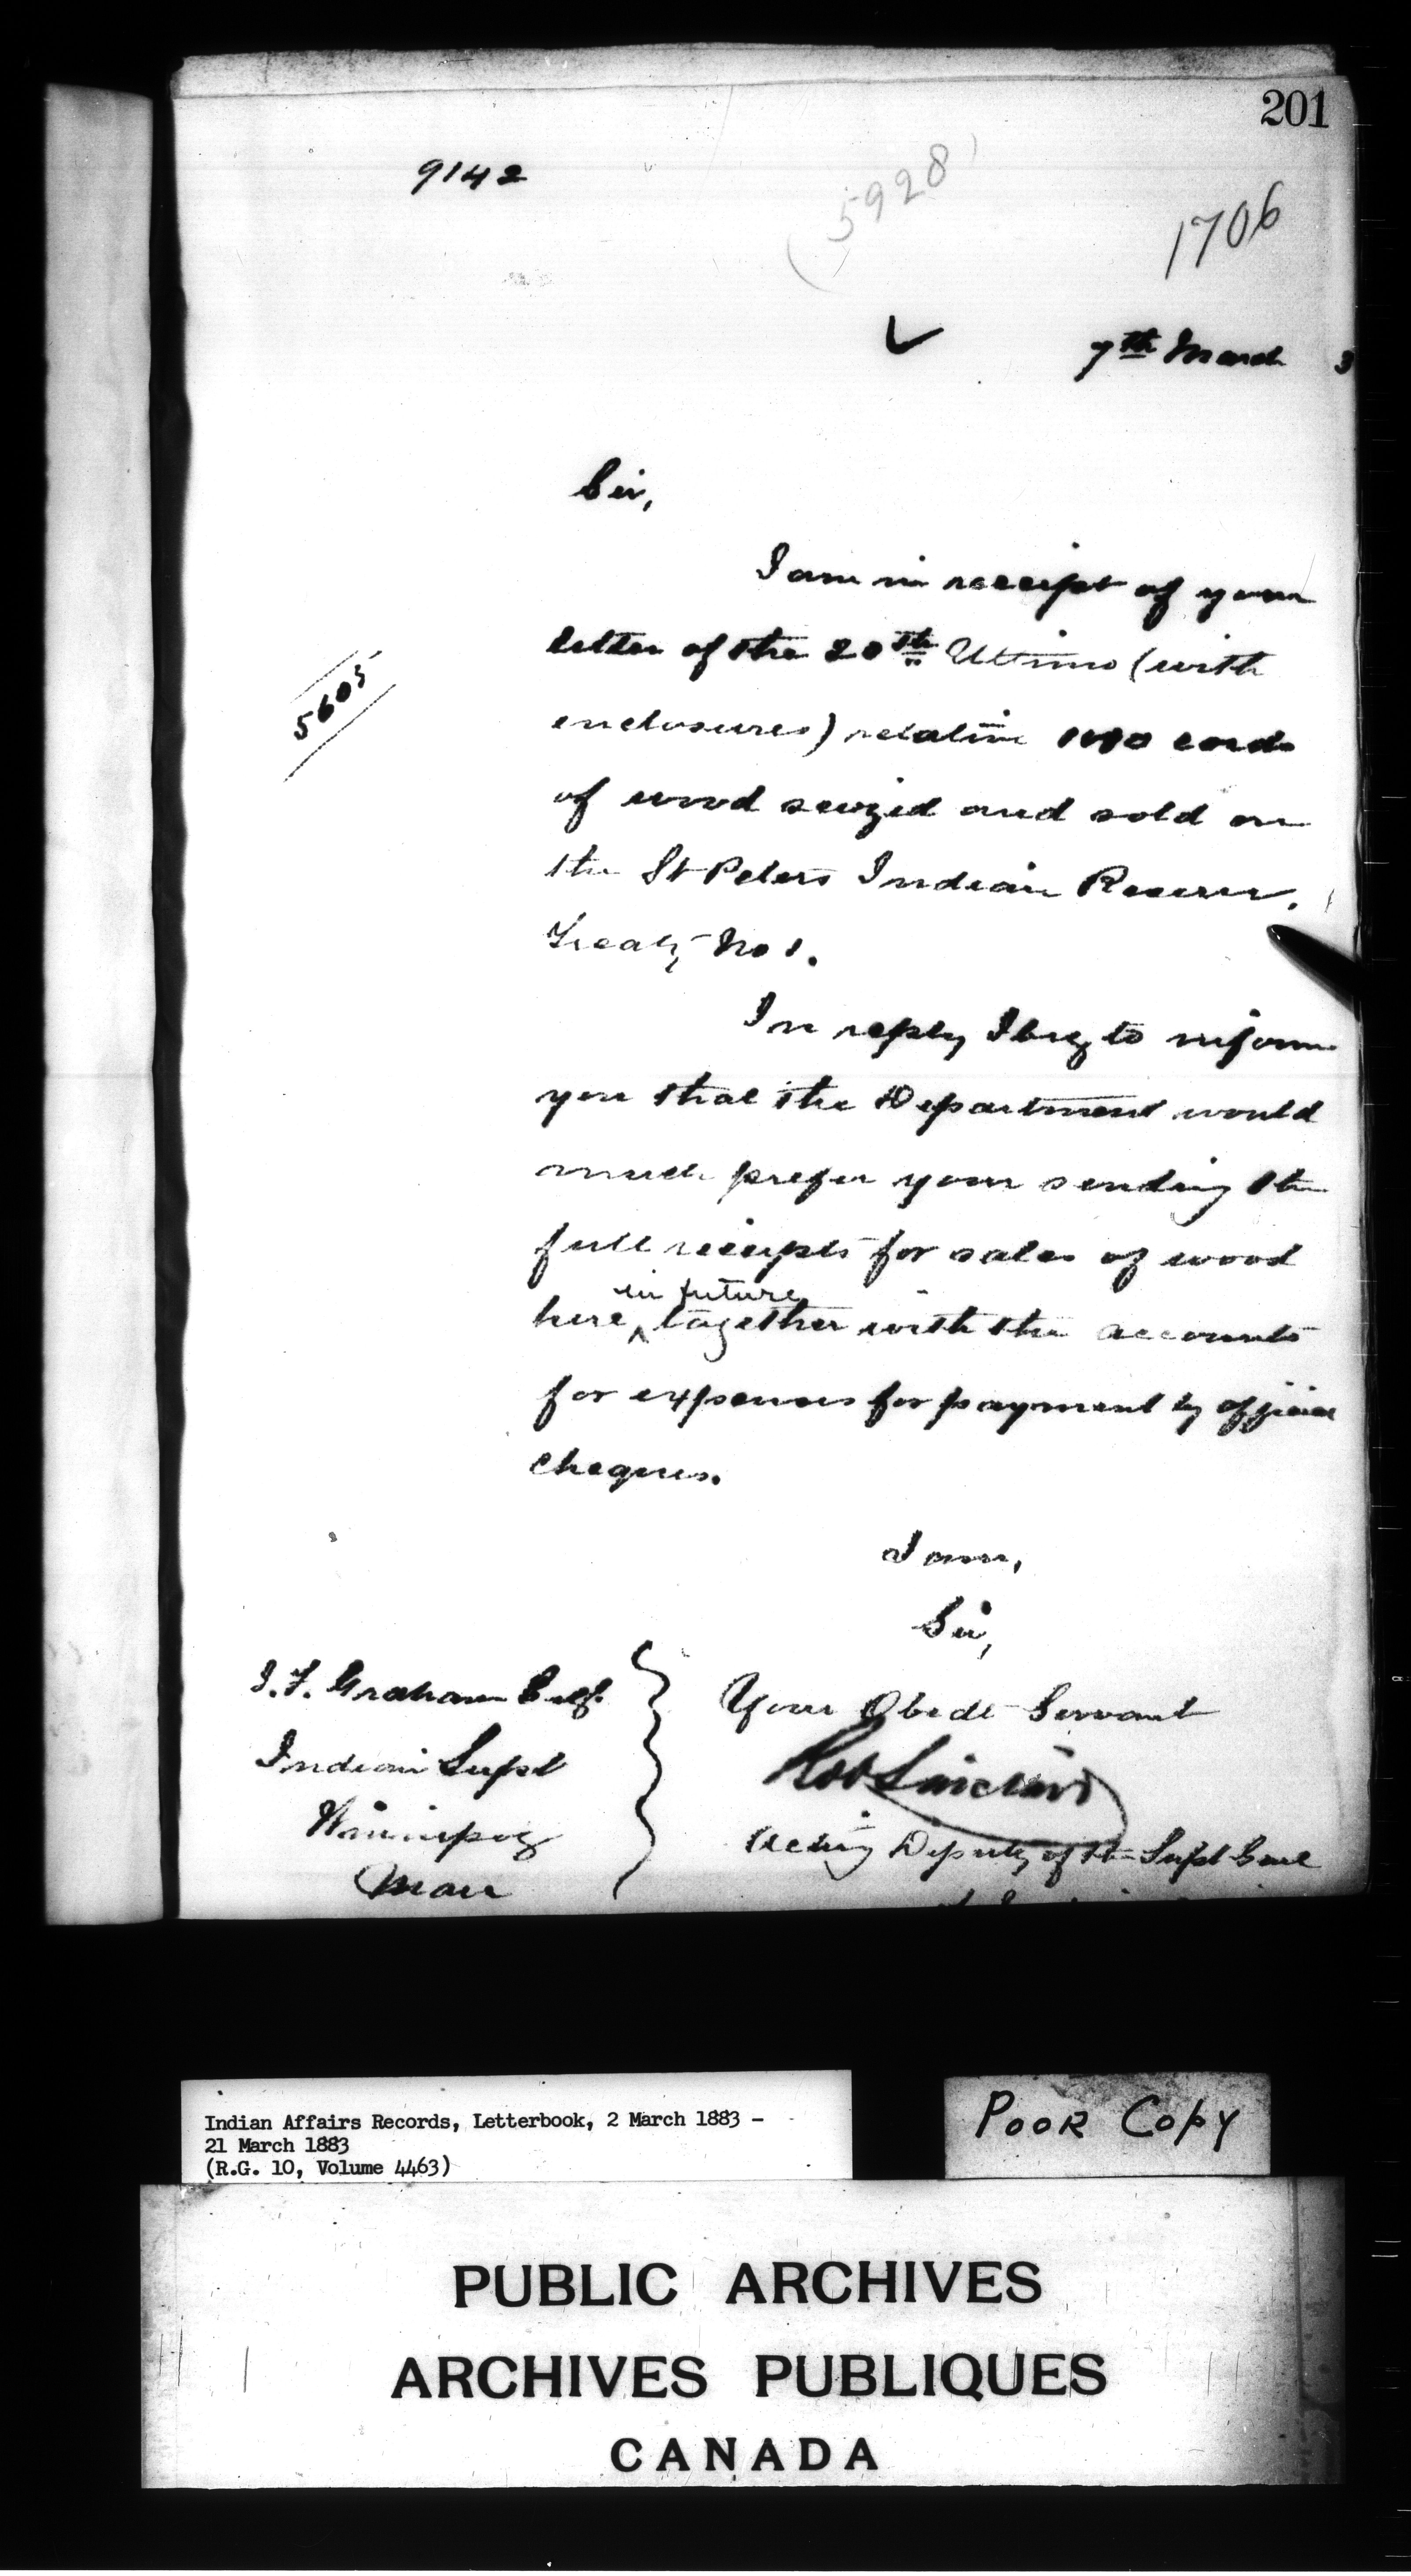 201
9142
(5928)
1706
7th March 3
Sir,
I am in receipt of your
letter of the 20th Ultimo (with
5605
enclosures) relative cords
of wood seized and sold on
the St Peters Indian Reserve,
Treaty No 1.
In reply I beg to inform
you that the Department would
much prefer your sending the
full receipts for sales of wood
in future
here, together with the accounts
for expenses for payment by official
cheques.
I am,
Sir,
J. F. Graham Esq.
Your Obedt Servant
Indian Supt
Robt Sinclair
Winnipeg
Acting Deputy of the Supt Genl
Man
Indian Affairs Records, Letterbook, 2 March 1883 -
21 March 1883
(R.G. 10, Volume 4463)
POOR COPY
PUBLIC ARCHIVES
ARCHIVES PUBLIQUES
CANADA